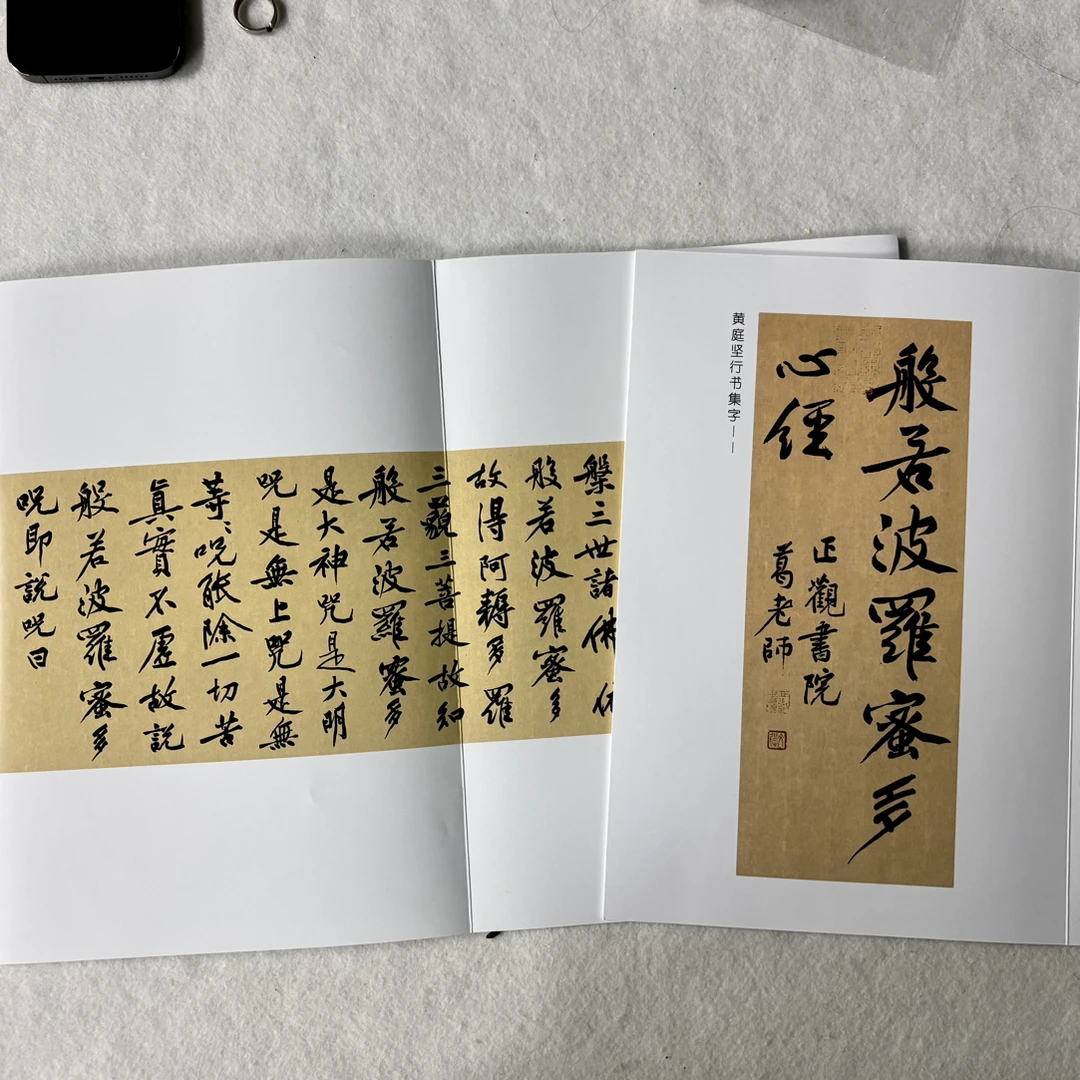 黄庭坚行书集字——
般若波羅蜜多
心經
正觀書院
葛老師
槃三世諸佛依
般若波羅蜜多
故得阿耨多羅
三藐三菩提故知
般若波羅蜜多
是大神咒是大明
呪是無上咒是無
等〻呪能除一切苦
真實不虛故說
般若波羅蜜多
呪即說呪曰